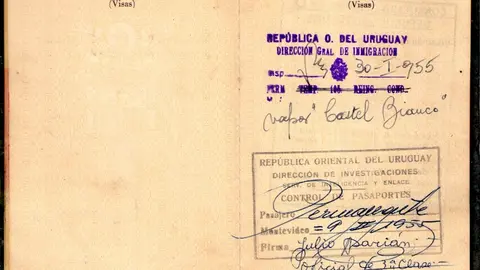 (Visas)
(Visas)
REPÚBLICA O. DEL URUGUAY
DIRECCIÓN GRAL DE INMIGRACION
Insp. 30-I-955
PERM TEMP. 165. REING. COND.
vapor "Castel Bianco"
REPÚBLICA ORIENTAL DEL URUGUAY
DIRECCIÓN DE INVESTIGACIONES
SERV. DE INTELIGENCIA Y ENLACE
CONTROL DE PASAPORTES
Pasajero Permanente
Montevideo = 9 1955
Firma Julio
Policial de 3ª Clase.-